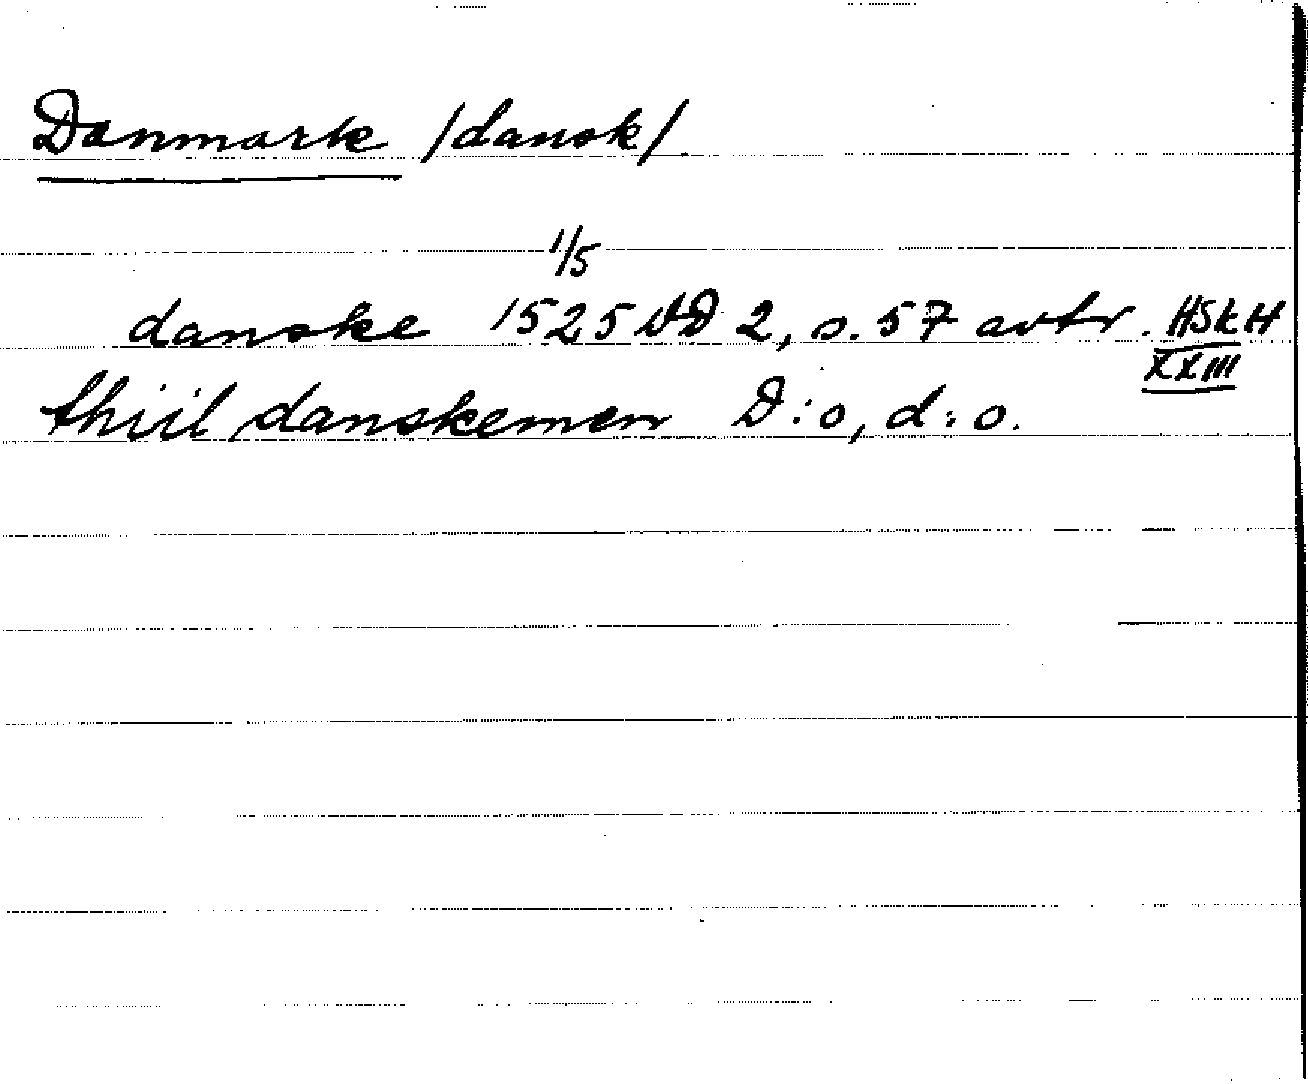 Danmark /dansk/
1/5
danske 1525 VD 2, s. 57 avtr. HSkH
XXIII
thiil danskemen D:o, d:o.